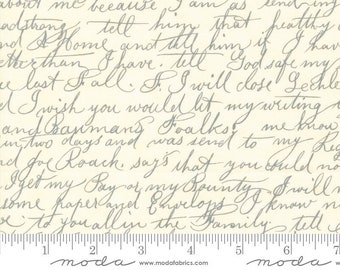 about me because I am as send in
adstrong tell him that healthy
nd A Home and tell him if I have
etter than I have. tell God safe my
re last Fall. F. I will close Lechle
I wish you would let my writing
and Baumans Foalks. me know
in two days and was send to my Reg
nd goe Roach says that you could no
I get my Pay or my Bounty I will n
some paper and Envelops I know n
e to you all in the Family tell
1 2 3 4 5 6 7
moda www.modafabrics.com moda